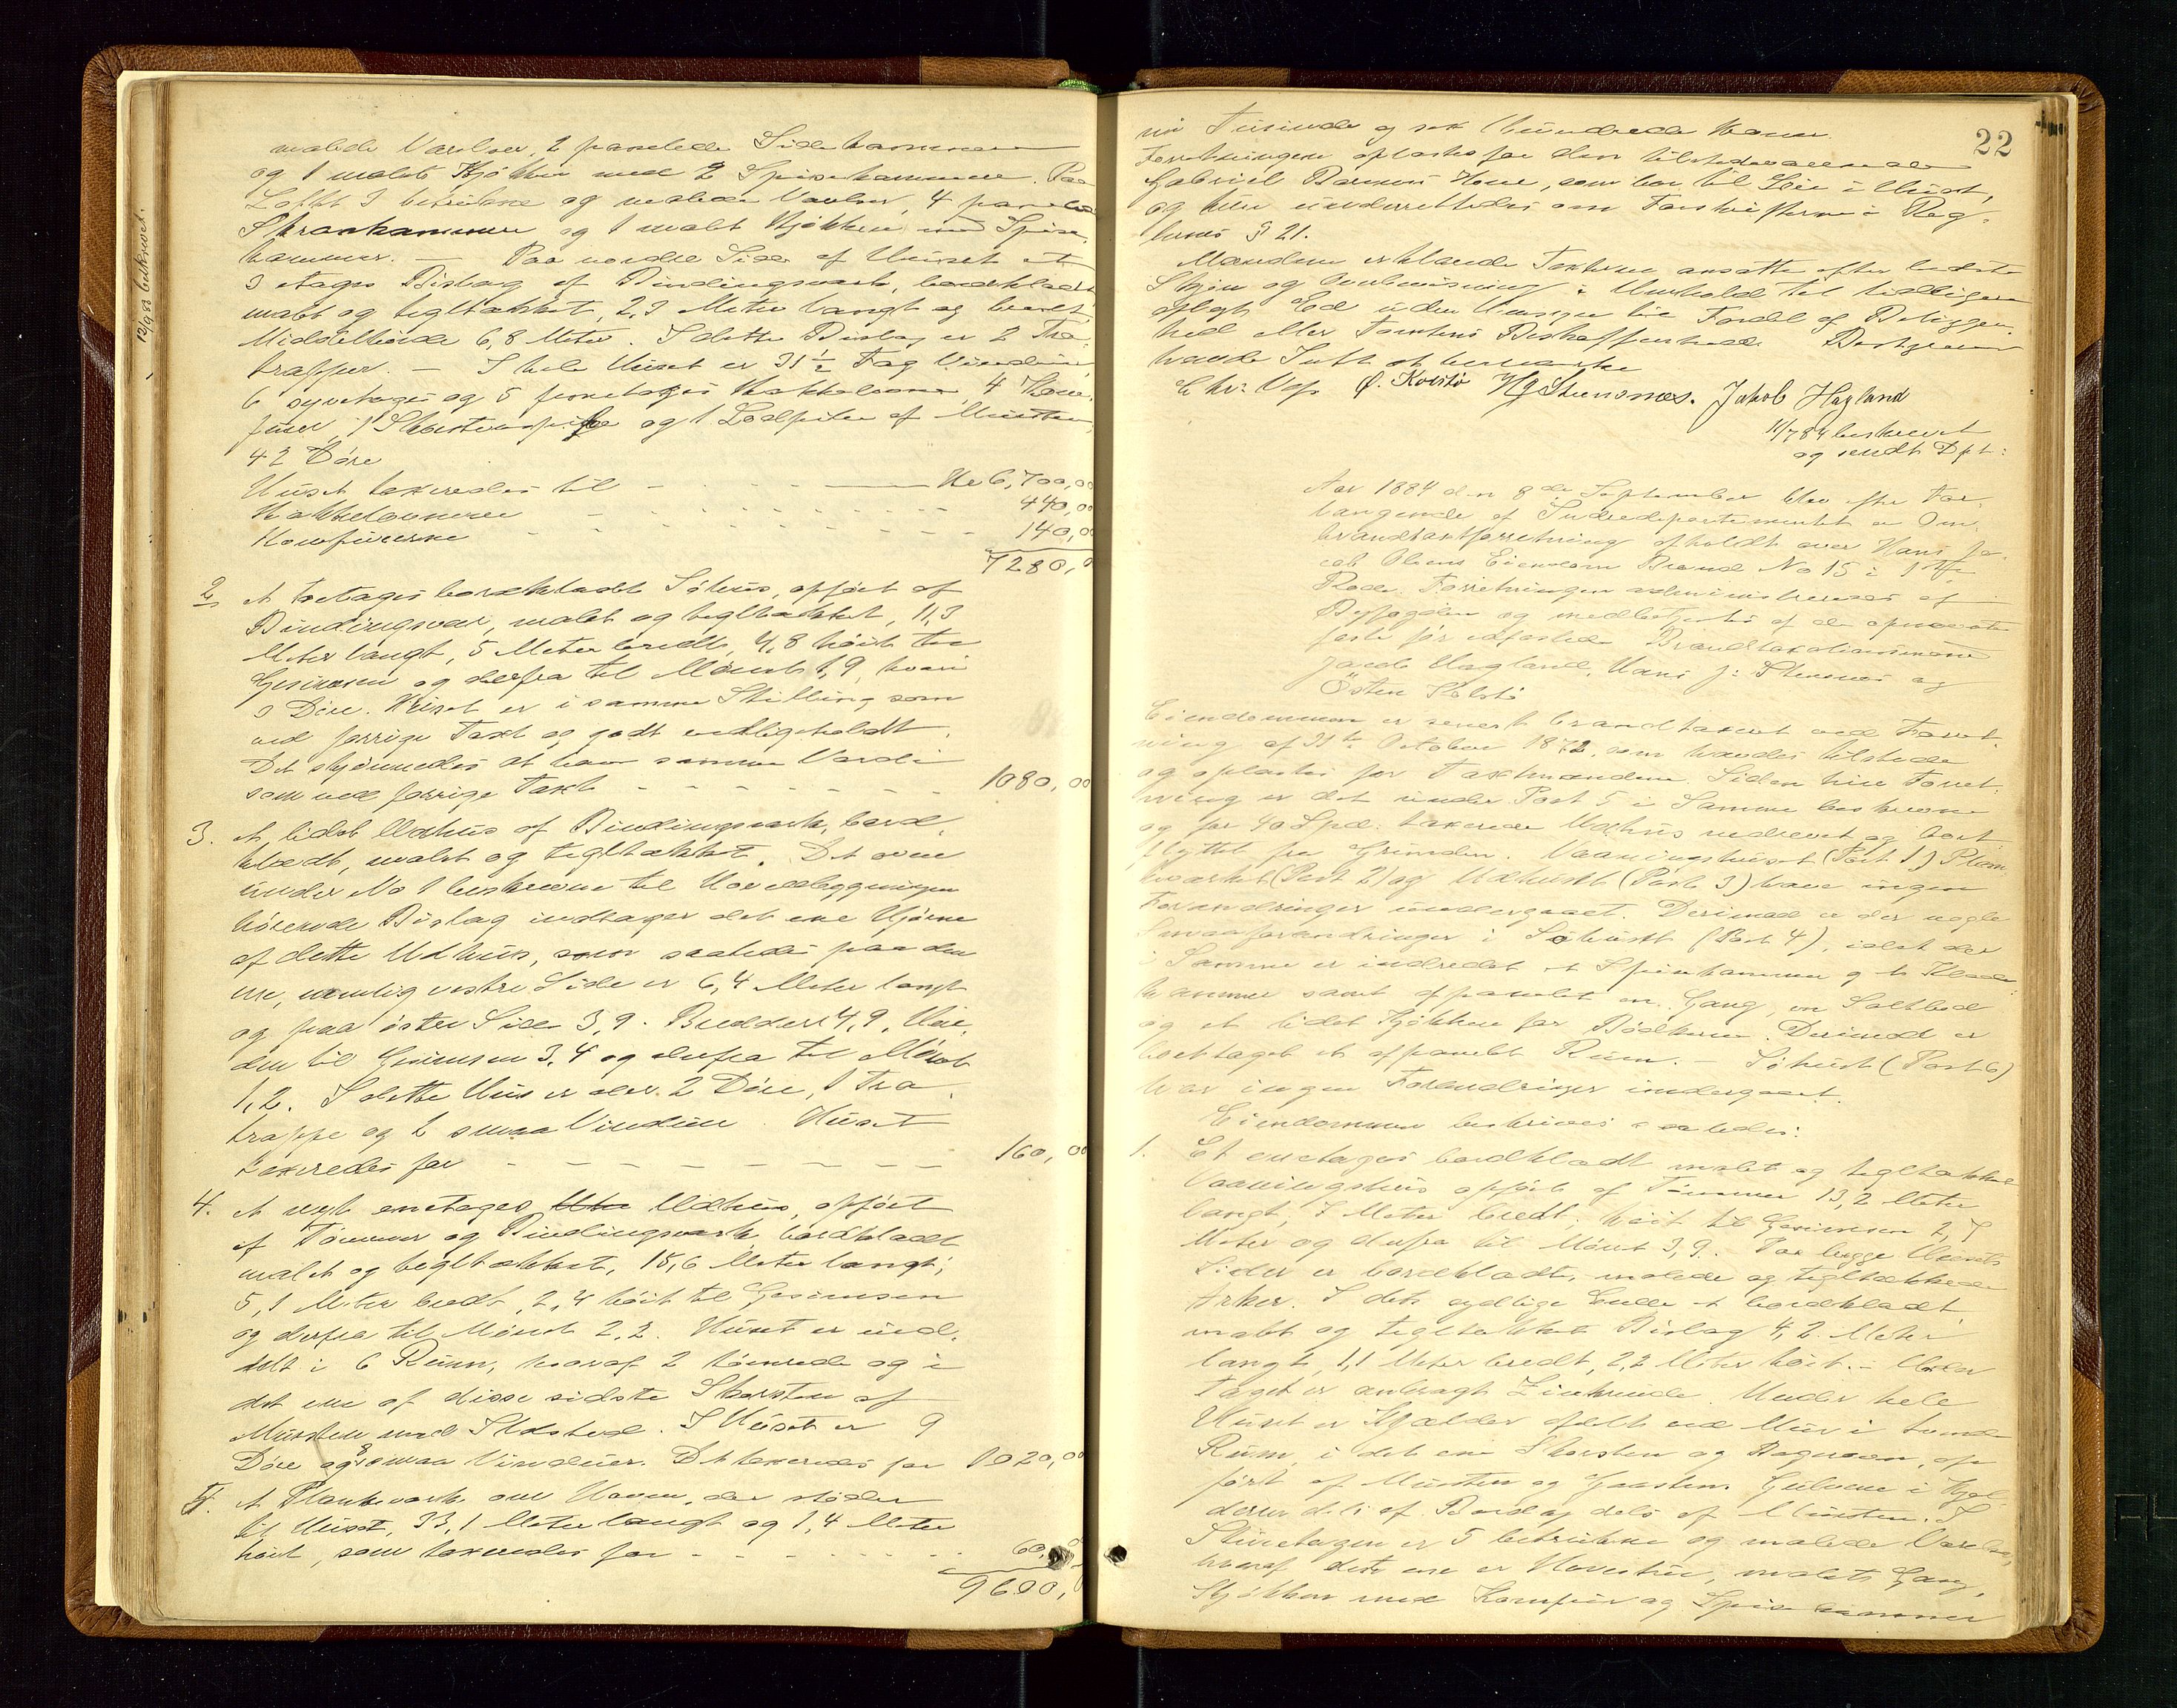 12/9 83 beskrevet.
malede Værelser, 2 panelede Sidekammere
og 1 malet Kjøkken med 2 Spisekammere. Paa
Loftet 3 betrukne og malede Værelser, 4 panelede
Skraakammere og 1 malt Kjøkken med Spise-
kammer. — Paa nordre Side af Huset et
3 etages Bislag af Bindingsværk, bordklædt
malet og tegltækket, 2,3 Meter langt og bredt
Middelhøide 6,8 Meter. I dette Bislag er 2 Træ-
trapper. — I hele Huset er 31 1/2 Fag Vinduer
6 syvetages og 5 femetages Kakkelovne, 4 Kom-
furer, 1 Skorstenspibe og 1 Lodpibe af Mursten,
42 Døre
Huset taxeredes til - - - Kr 6,700,00
Kakkelovnene - - - 440,00
Komfurerne - - - 140,00
7280,0
2. et toetages bordklædt Søhus, opført af
Bindingsværk, malet og tegltækket, 11,3
Meter langt, 5 Meter bredt, 4,8 høit til
Gesimsen og derfra til Mønet 1,9, hvori
9 Døre. Huset er i samme Stilling som
ved forrige Taxt og godt vedligeholdt.
Det skjønnedes at have samme Værdi
som ved forrige Taxt - - - 1080,00
3. et lidet Udhus af Bindingsværk, bord-
klædt, malet og tegltækket. Det oven
under No 1 beskrevne til Hovedbygningen
hørende Bislag indtager det ene Hjørne
af dette Udhus, som saaledes paa den
ene, nemlig vestre Side er 6,4 Meter langt
og paa østre Side 3,9. Bredden 4,9, Høi-
den til Gesimsen 3,4 og derfra til Mønet
1,2. I dette Hus er der 2 Døre, 1 Træ-
trappe og 2 smaa Vinduer. Huset
taxeredes for - - - 160,00
4. et nyt enetages Udhus, opført
af Tømmer og Bindingsværk, bordklædt
malet og tegltækket, 15,6 Meter langt,
5,1 Meter bredt, 2,4 høit til Gesimsen
og derfra til Mønet 2,2. Huset er ind-
delt i 6 Rum, hvoraf 2 tømrede og i
det ene af disse sidste Skorsten af
Mursten med Ildsted. I Huset er 9
Døre og 8 smaa Vinduer. Det taxeredes for 1020,00
5. et Plankeværk om Haven, der støder
til Huset, 33,1 Meter langt og 1,4 Meter
høit, som taxeredes for - - - 60,0
9600,
22
ni Tusinde og sex Hundrede Kroner.
Forretningen oplæstes for den tilstedeværende
Gabriel Hone, som var til Stede i Huset,
og blev underrettedes om Forskrifterne i Reg-
lernes § 21.
Mændene erklærede Taxterne ansatte efter bedste
Skjøn og Overbevisning i Henhold til tidligere
aflagt Ed uden Hensyn til Fordel af Beliggen-
hed eller Tomtens Beskaffenhed. Bestyreren
havde Intet at bemærke
Chr: Ø. Kolstø H J Stensnæs. Jakob Hagland
11/7 84 beskrevet
og sendt Dpt:
Aar 1884 den 8de September blev efter For-
langende af Indredepartementet en Om-
brandtaxtforretning afholdt over Hans Ja-
cob Olsens Eiendom Brand No 15 i 1ste
Rode. Forretningen administreredes af
Byfogden og medbetjentes af de opnævnte
faste før edfæstede Brandtaxationsmænd
Jacob Hagland, Hans J: Stensnes og
Østen Kolstø
Eiendommen er senest brandtaxeret ved Forret-
ning af 31te October 1872, som havdes tilstede
og oplæstes for Taxtmændene. Siden hiin Forret-
ning er det under Post 5 i Samme beskrevne
og for 40 Spd: taxerede Udhus nedrevet og bort
flyttet fra Grunden. Vaaningshuset (Post 1) Plan-
keværket (Post 2) og Udhuset (Post 3) have ingen
Forandringer undergaaet. Derimod er der nogle
Smaaforandringer i Søhuset (Post 4), idet der
i Samme er indredet et Spisekammer og et Klæde-
kammer samt afpanelet en Gang, en Saltbod
og et lidet Kjøkken for Bødkeren. Derimod er
borttaget et afpanelt Rum. — Søhuset (Post 6)
har ingen Forandringer undergaaet.
Eiendommen beskrives saaledes:
1. Et enetages bordklædt malet og tegltækket
Vaaningshus opført af Tømmer 13,2 Meter
langt, 7 Meter bredt, høit til Gesimsen 2,7
Meter og derfra til Mønet 3,9. Paa begge Husets
Sider er bordklædte, malede og tegltækkede
Arker. I dets sydlige Ende et bordklædt
malet og tegltækket Bislag 4,2 Meter
langt, 1,1 Meter bredt, 2,2 Meter høit. — Under
Taget er anbragt Zinkrende. Under hele
Huset er Kjælder afdelt ved Mur i tvende
Rum, i det ene Skorsten og Bagerovn, op
ført af Mursten og Graasten. Gulvene i Kjæl-
deren dels af Bord og dels af Mursten. I
Stuetagen er 5 betrukne og malede Værelser,
hvoraf det ene er Havestue, malet Gang,
Kjøkken med Komfur og Spisekammer